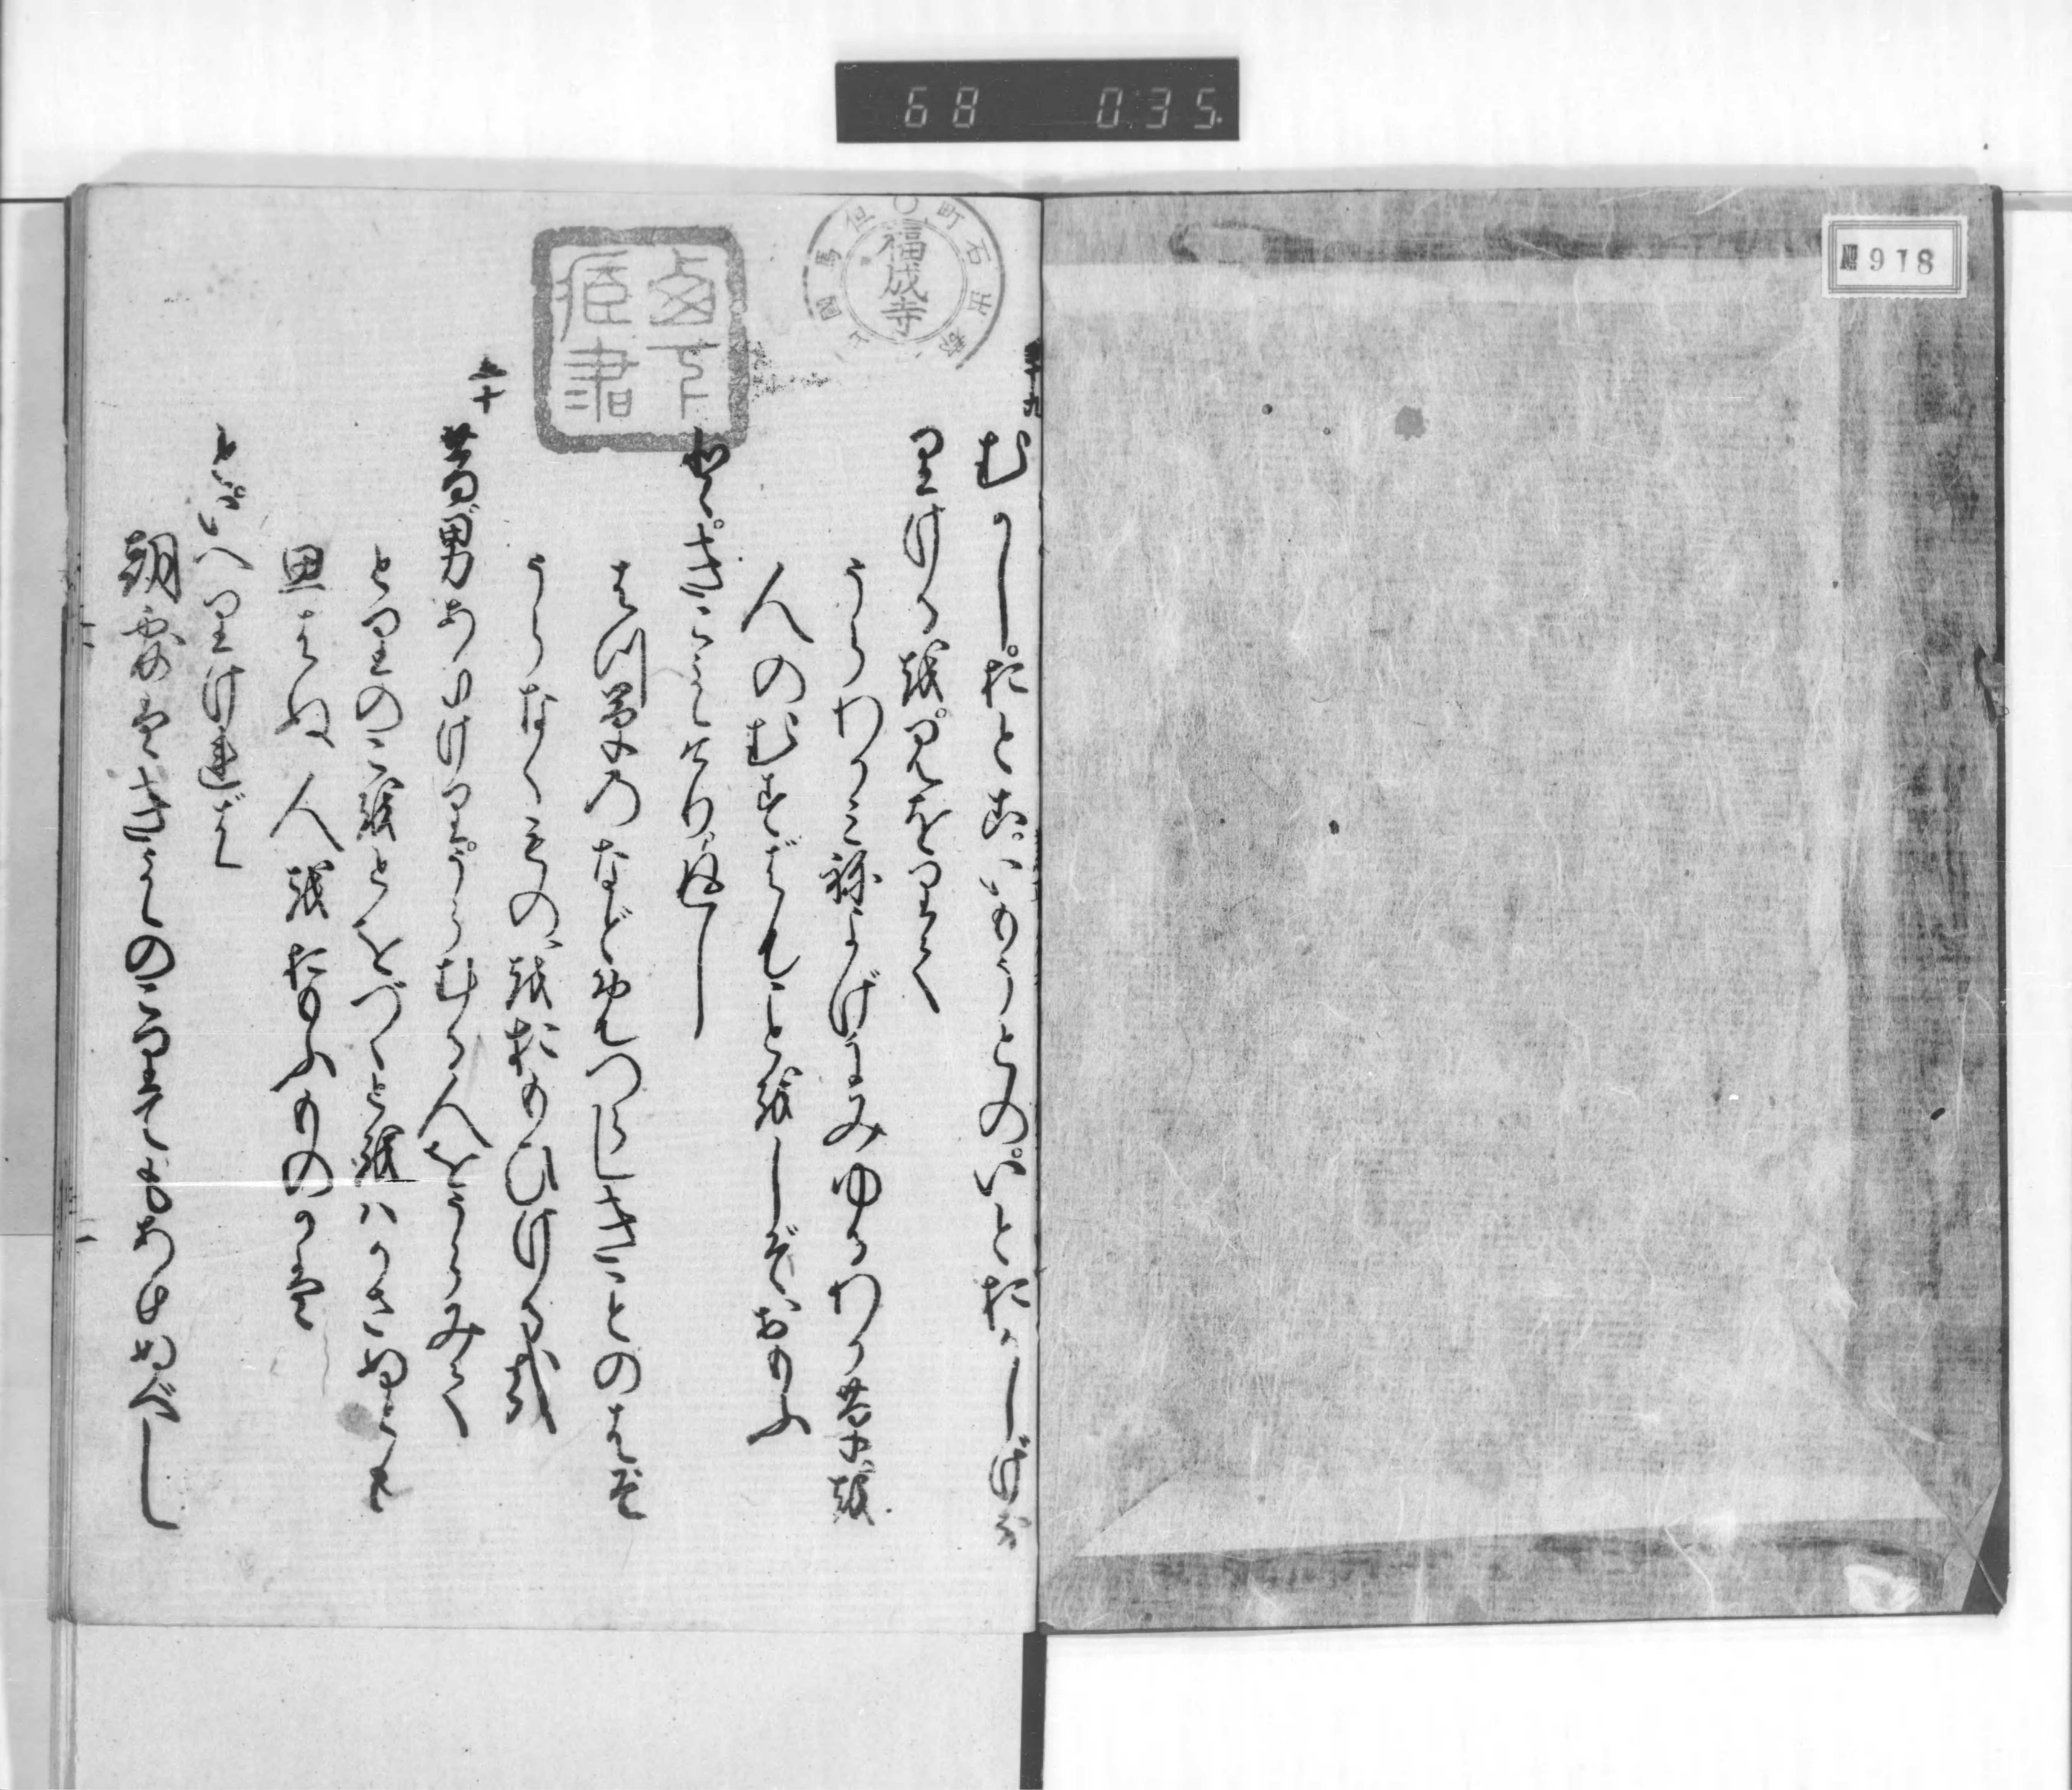 68 035
№ 918
福成寺
四十九
むかしおとこいもうとのいとおかしげな
りける越見をりて
うらわかみ祢よげにみゆるわか草越
人のむすばむこと越しぞおもふ
ときこえけり返し
はつ草のなどめづらしきことのはぞ
うらなくものを越おもひける哉
五十
昔男ありけりうらむる人をうらみて
とりのこ越とをづゝと越ハかさぬとも
思はぬ人越おもふものかは
といへりければ
朝露ハきえのこりてもありぬべし